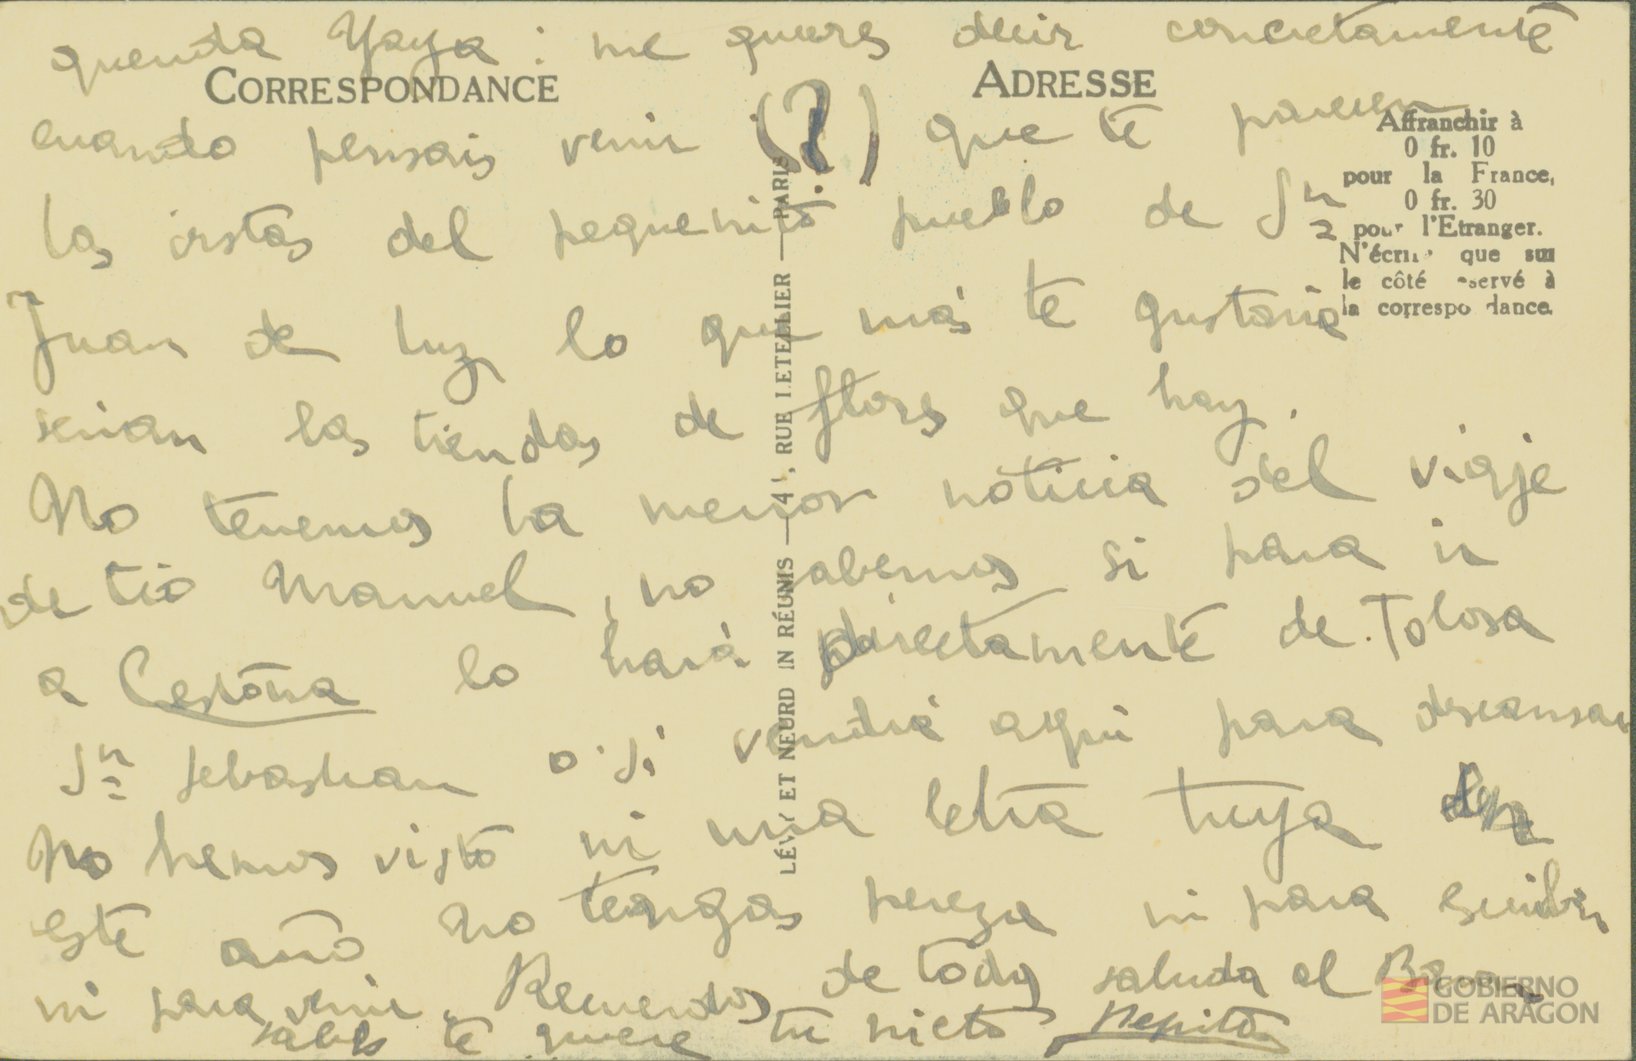 querida Yaya: me quieres decir concretamente
CORRESPONDANCE
ADRESSE
cuando pensais venir (?) que te parecen
las vistas del pequeñito pueblo de Sn
Juan de Luz lo que más te gustaria
serian las tiendas de flores que hay.
No tenemos la menor noticia del viaje
de tio Manuel, no sabemos si para ir
a Cestona lo hará directamente de Tolosa
Sn Sebastian o si vendrá aqui para descansar
No hemos visto ni una letra tuya en
este año no tengas pereza ni para escribir
ni para venir. Recuerdos de todos saluda al
sabes te quiere tu nieto Pepito
Affranchir à
0 fr. 10
pour la France,
0 fr. 30
pour l'Etranger.
N'écrire que sur
le côté réservé à
la correspondance.
LÉVY ET NEURDEIN RÉUNIS — 44, RUE LETELLIER — PARIS
GOBIERNO
DE ARAGON